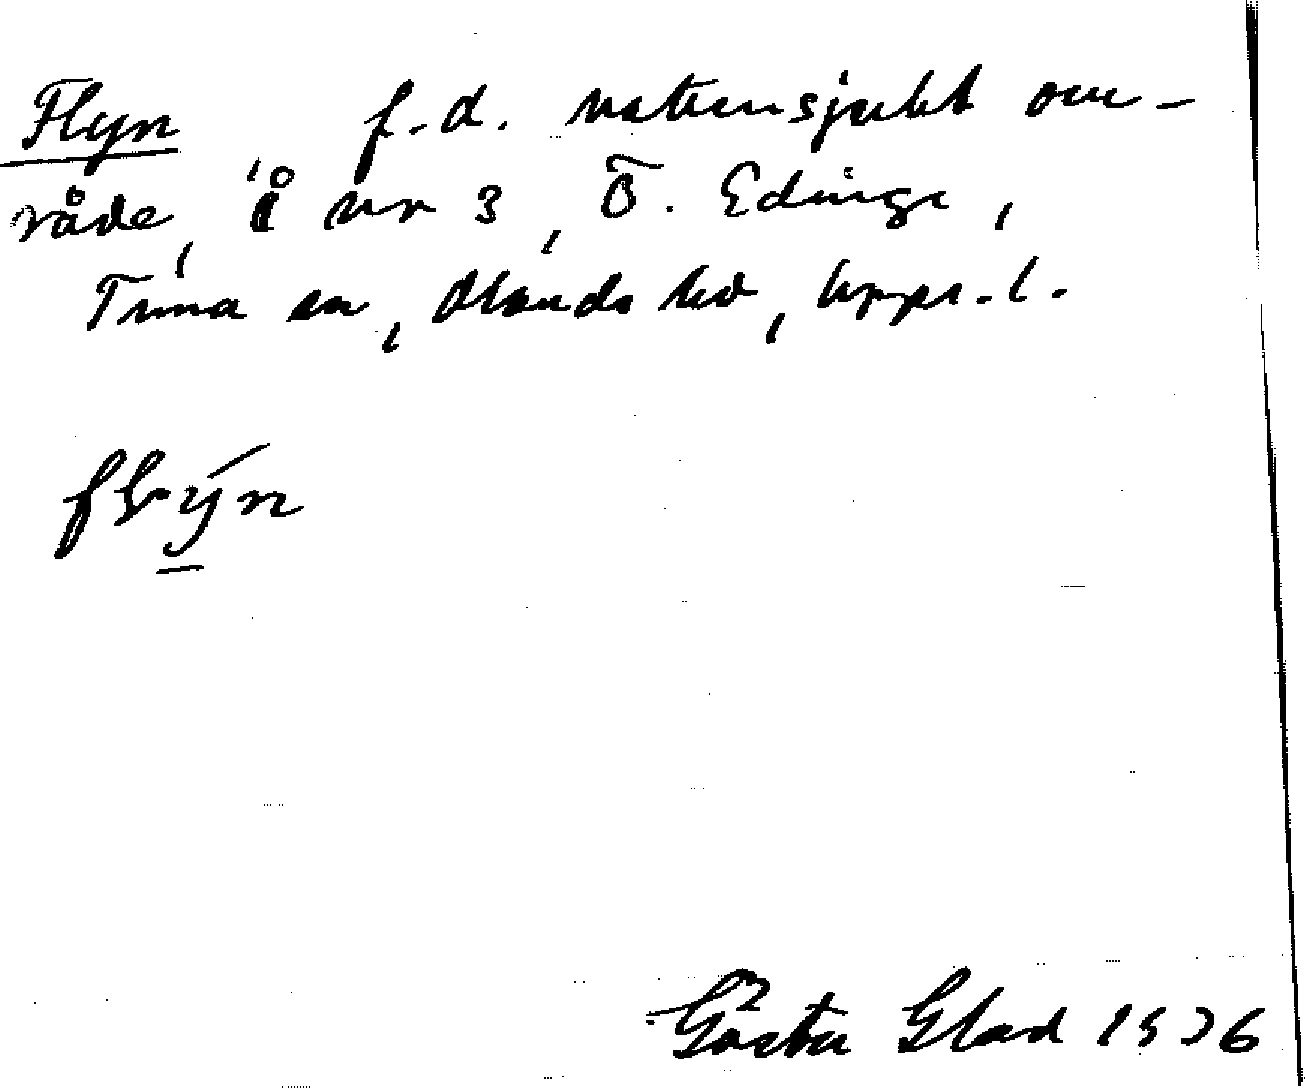 Flyn f.d. vattensjukt om-
råde, å nr 3, Ö. Edinge,
Tuna sn, Olands hd, Upps. l.
flýn
Gösta Glad 1936